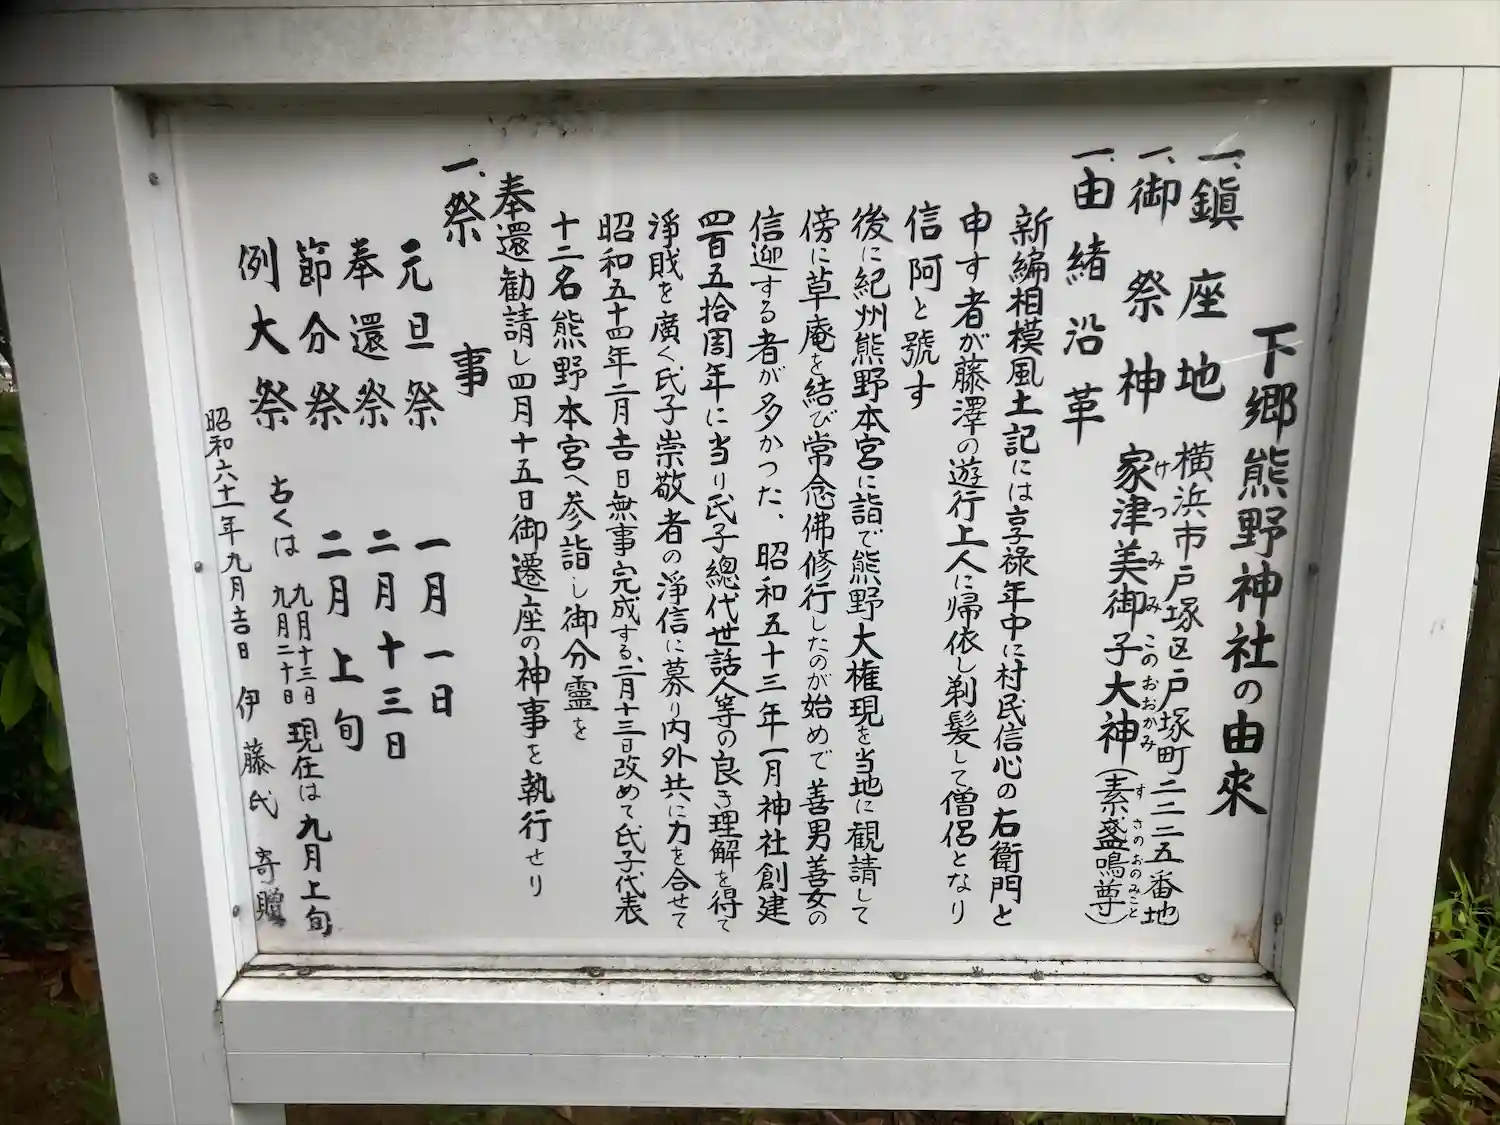 下郷熊野神社の由來
一、鎭座地 横浜市戸塚区戸塚町二二二五番地
一、御祭神 家津美御子大神(素盛鳴尊)
けつみみこのおおかみ すさのおのみこと
一、由緒沿革
新編相模風土記には享祿年中に村民信心の右衛門と
申す者が藤澤の遊行上人に帰依し剃髪して僧侶となり
信阿と號す
後に紀州熊野本宮に詣で熊野大権現を当地に観請して
傍に草庵を結び常念佛修行したのが始めで善男善女の
信迎する者が多かつた、昭和五十三年一月神社創建
四百五拾周年に当り氏子總代世話人等の良き理解を得て
淨戝を廣く氏子崇敬者の淨信に募り内外共に力を合せて
昭和五十四年二月吉日無事完成する、二月十三日改めて氏子代表
十二名熊野本宮へ参詣し御分靈を
奉還勧請し四月十五日御遷座の神事を執行せり
一、祭事
元旦祭 一月一日
奉還祭 二月十三日
節分祭 二月上旬
例大祭 古くは 九月十三日 九月二十日 現在は九月上旬
昭和六十一年九月吉日 伊藤氏 寄贈